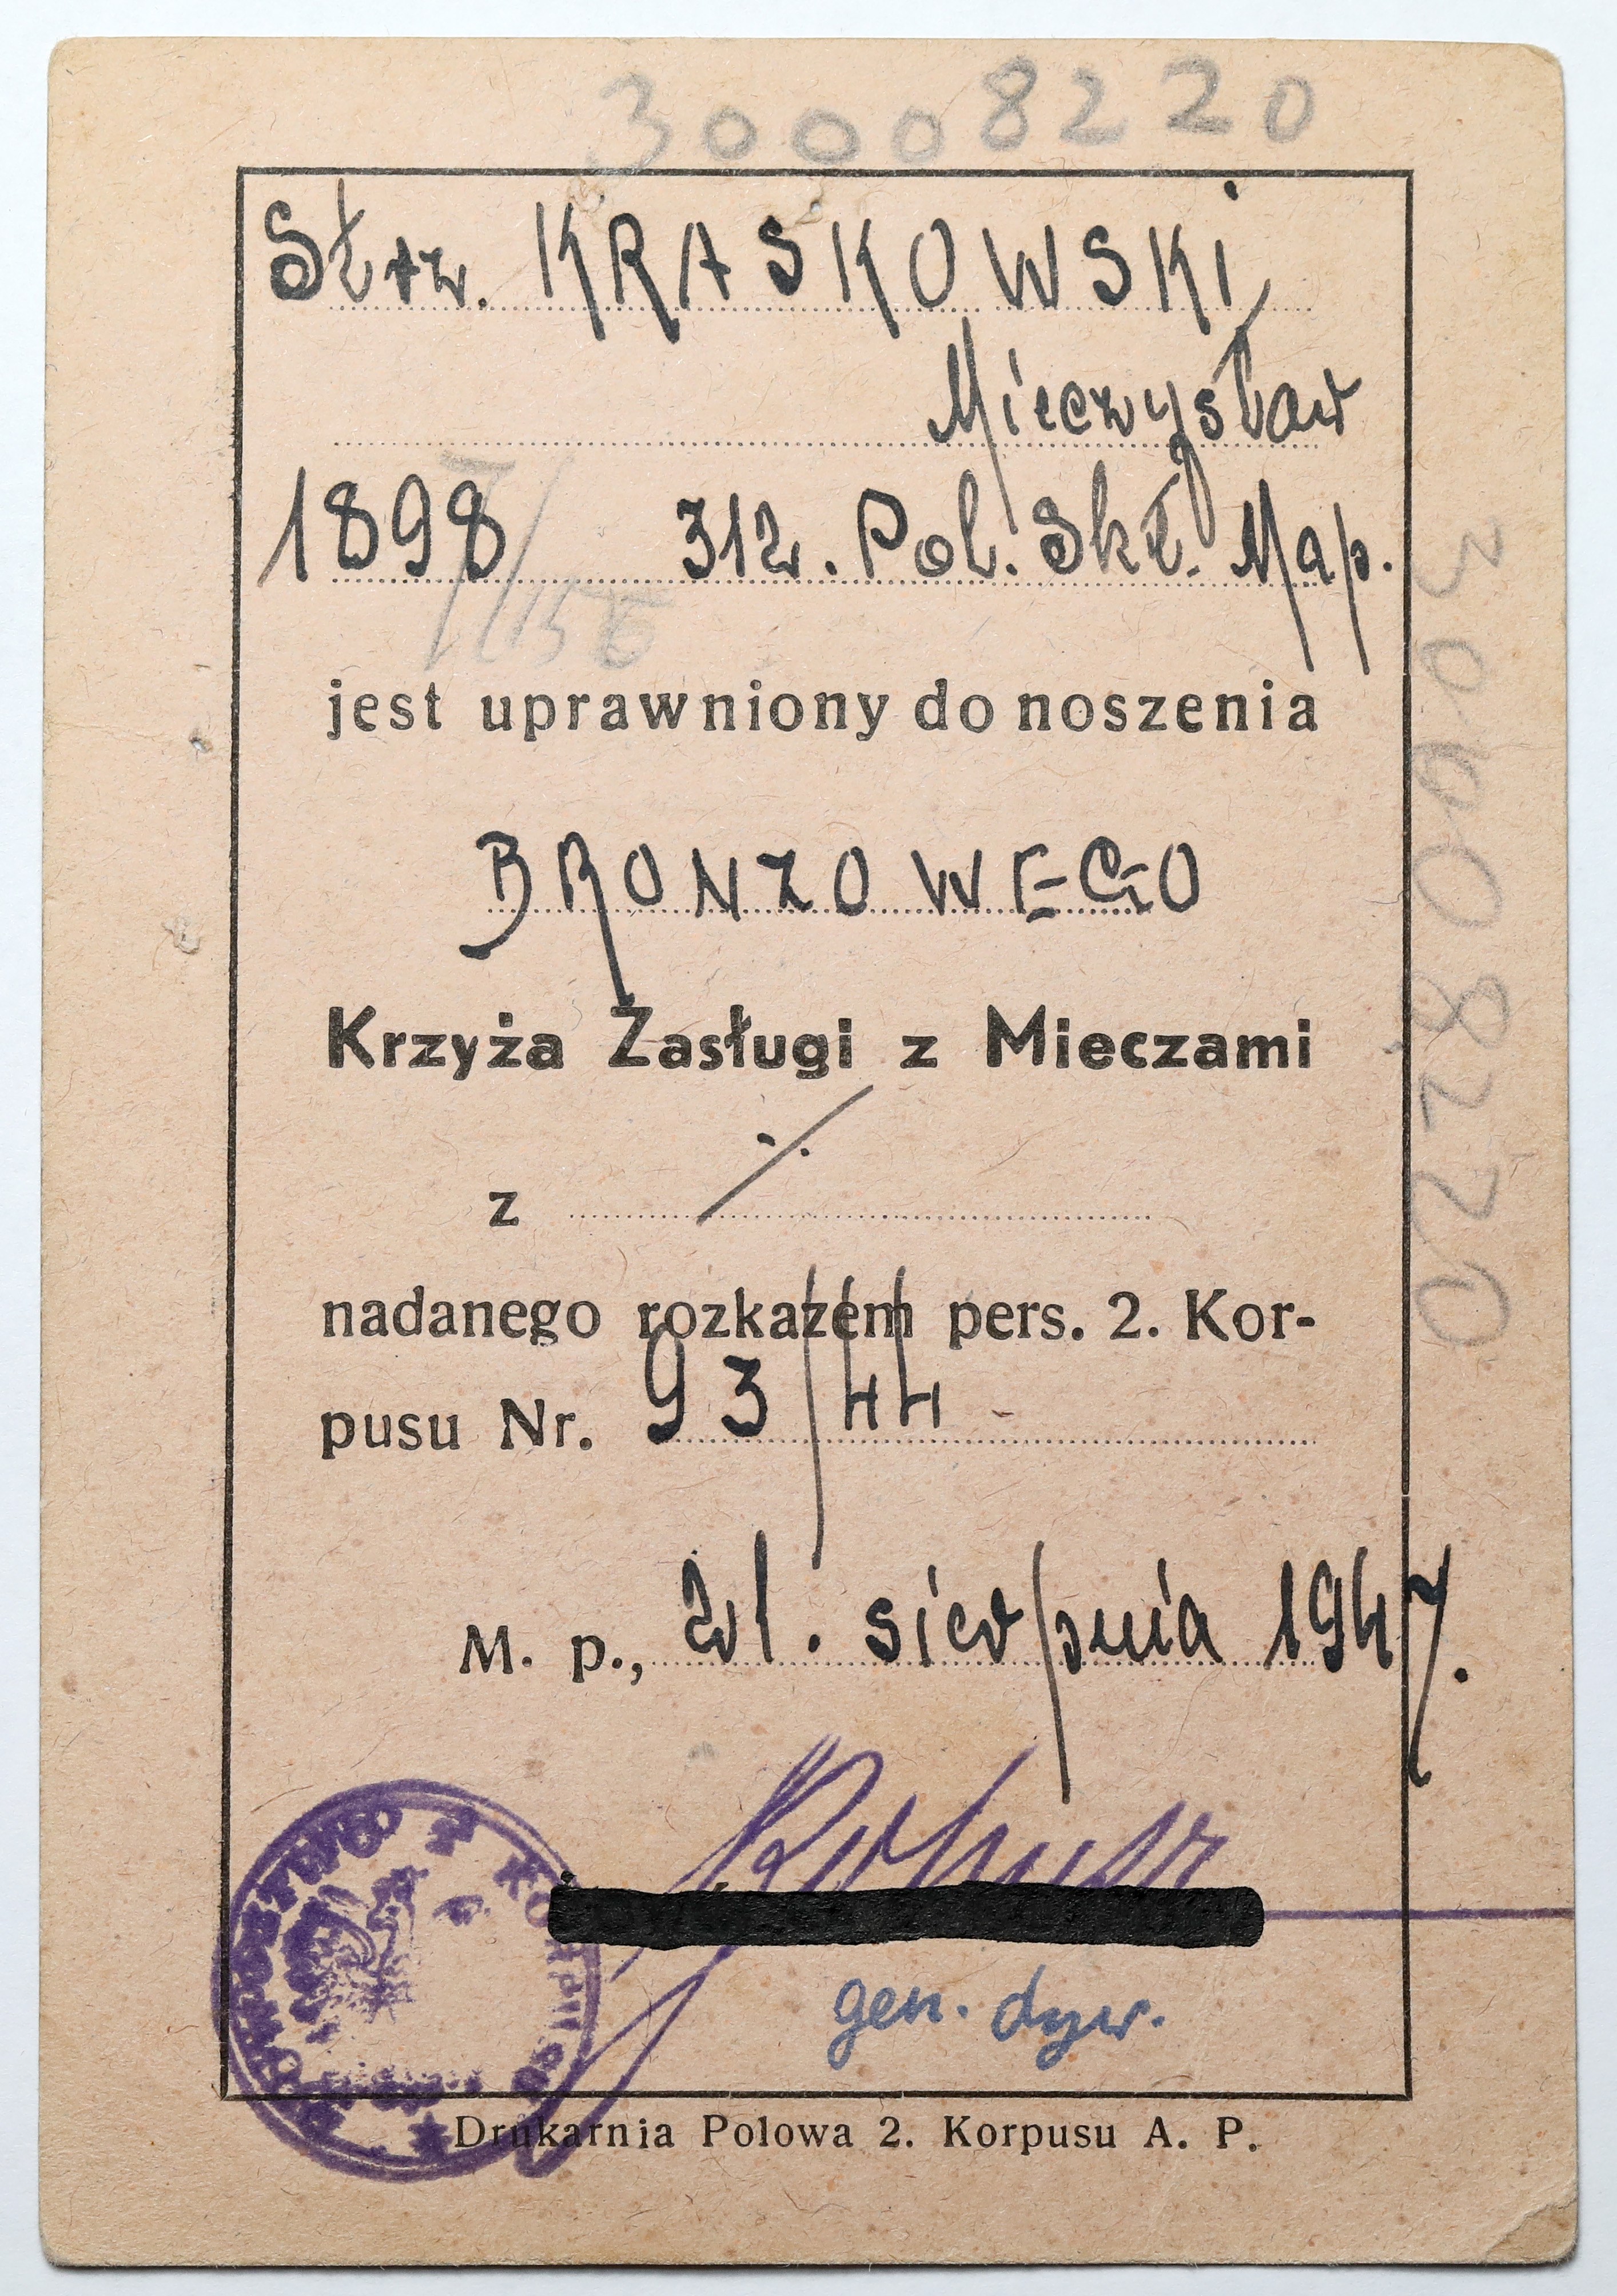 30008220
Strz. KRASKOWSKI
Mieczysław
1898 312. Pol. Skł. Map.
jest uprawniony do noszenia
BRONZOWEGO
Krzyża Zasługi z Mieczami
z ./.
nadanego rozkazem pers. 2. Kor-
pusu Nr. 93/44
M. p., 21. sierpnia 1947.
gen. dyw.
Drukarnia Polowa 2. Korpusu A. P.
30008220